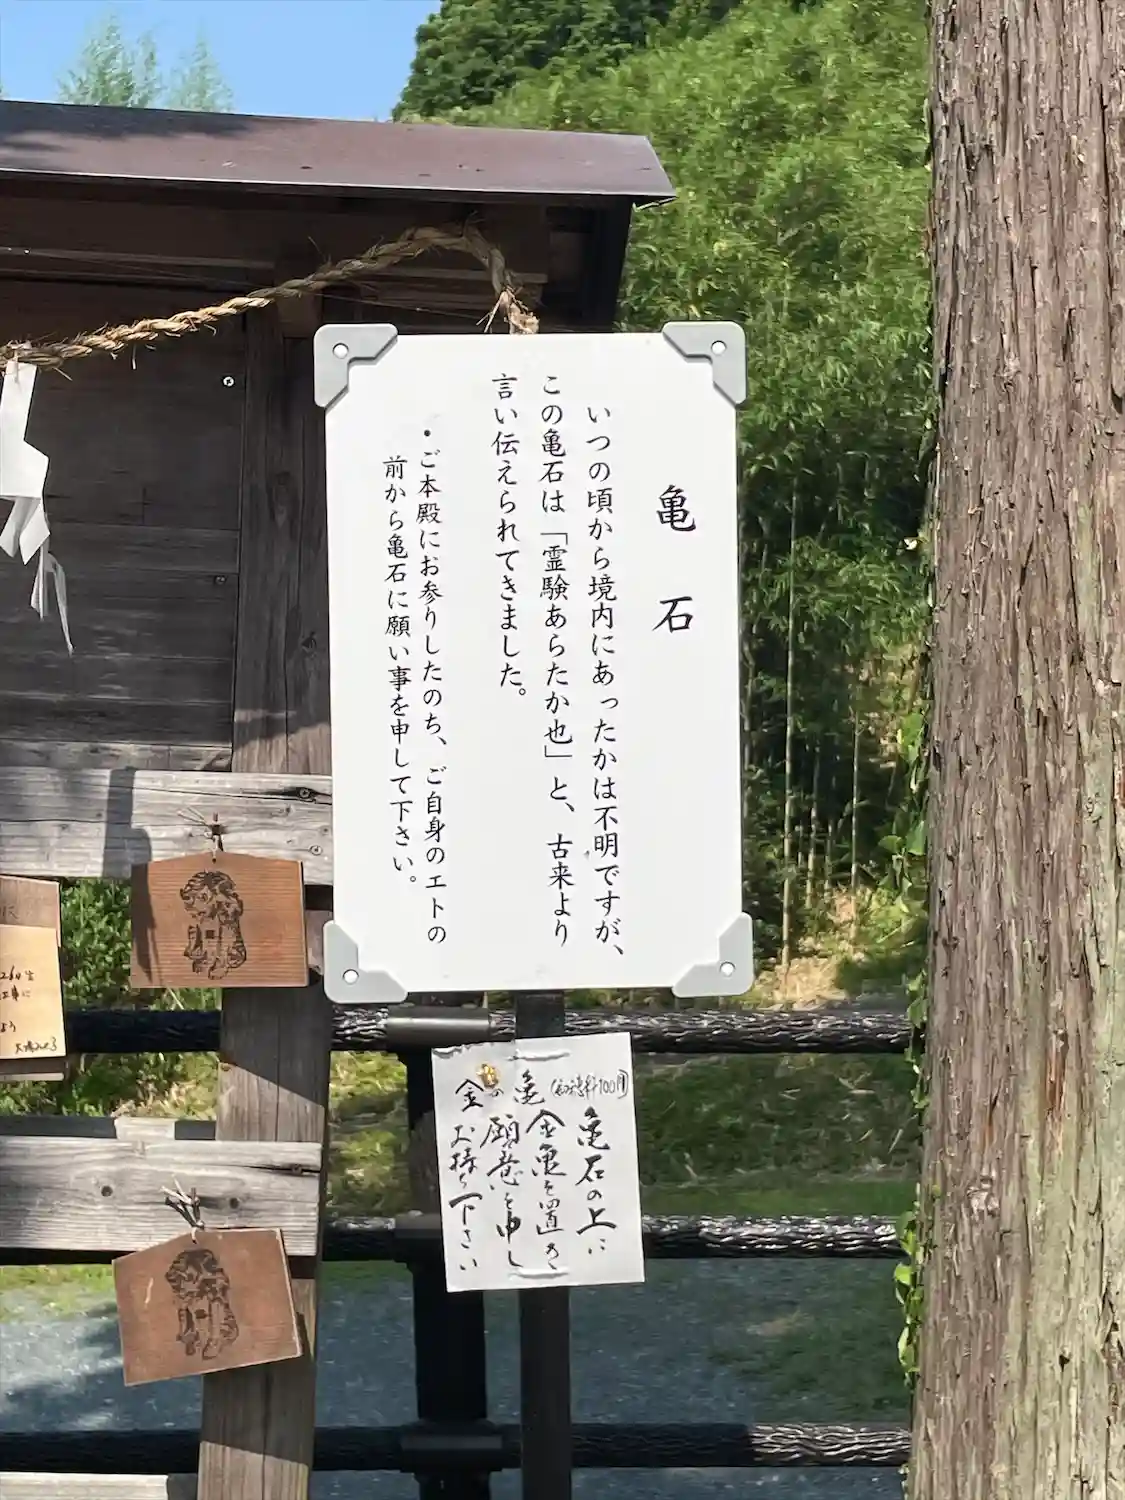 亀石
いつの頃から境内にあったかは不明ですが、
この亀石は「霊験あらたか也」と、古来より
言い伝えられてきました。
・ご本殿にお参りしたのち、ご自身のエトの
前から亀石に願い事を申して下さい。
金の亀(初穂料100円)
亀石の上に
金亀を置き
願意を申し
お持ち下さい